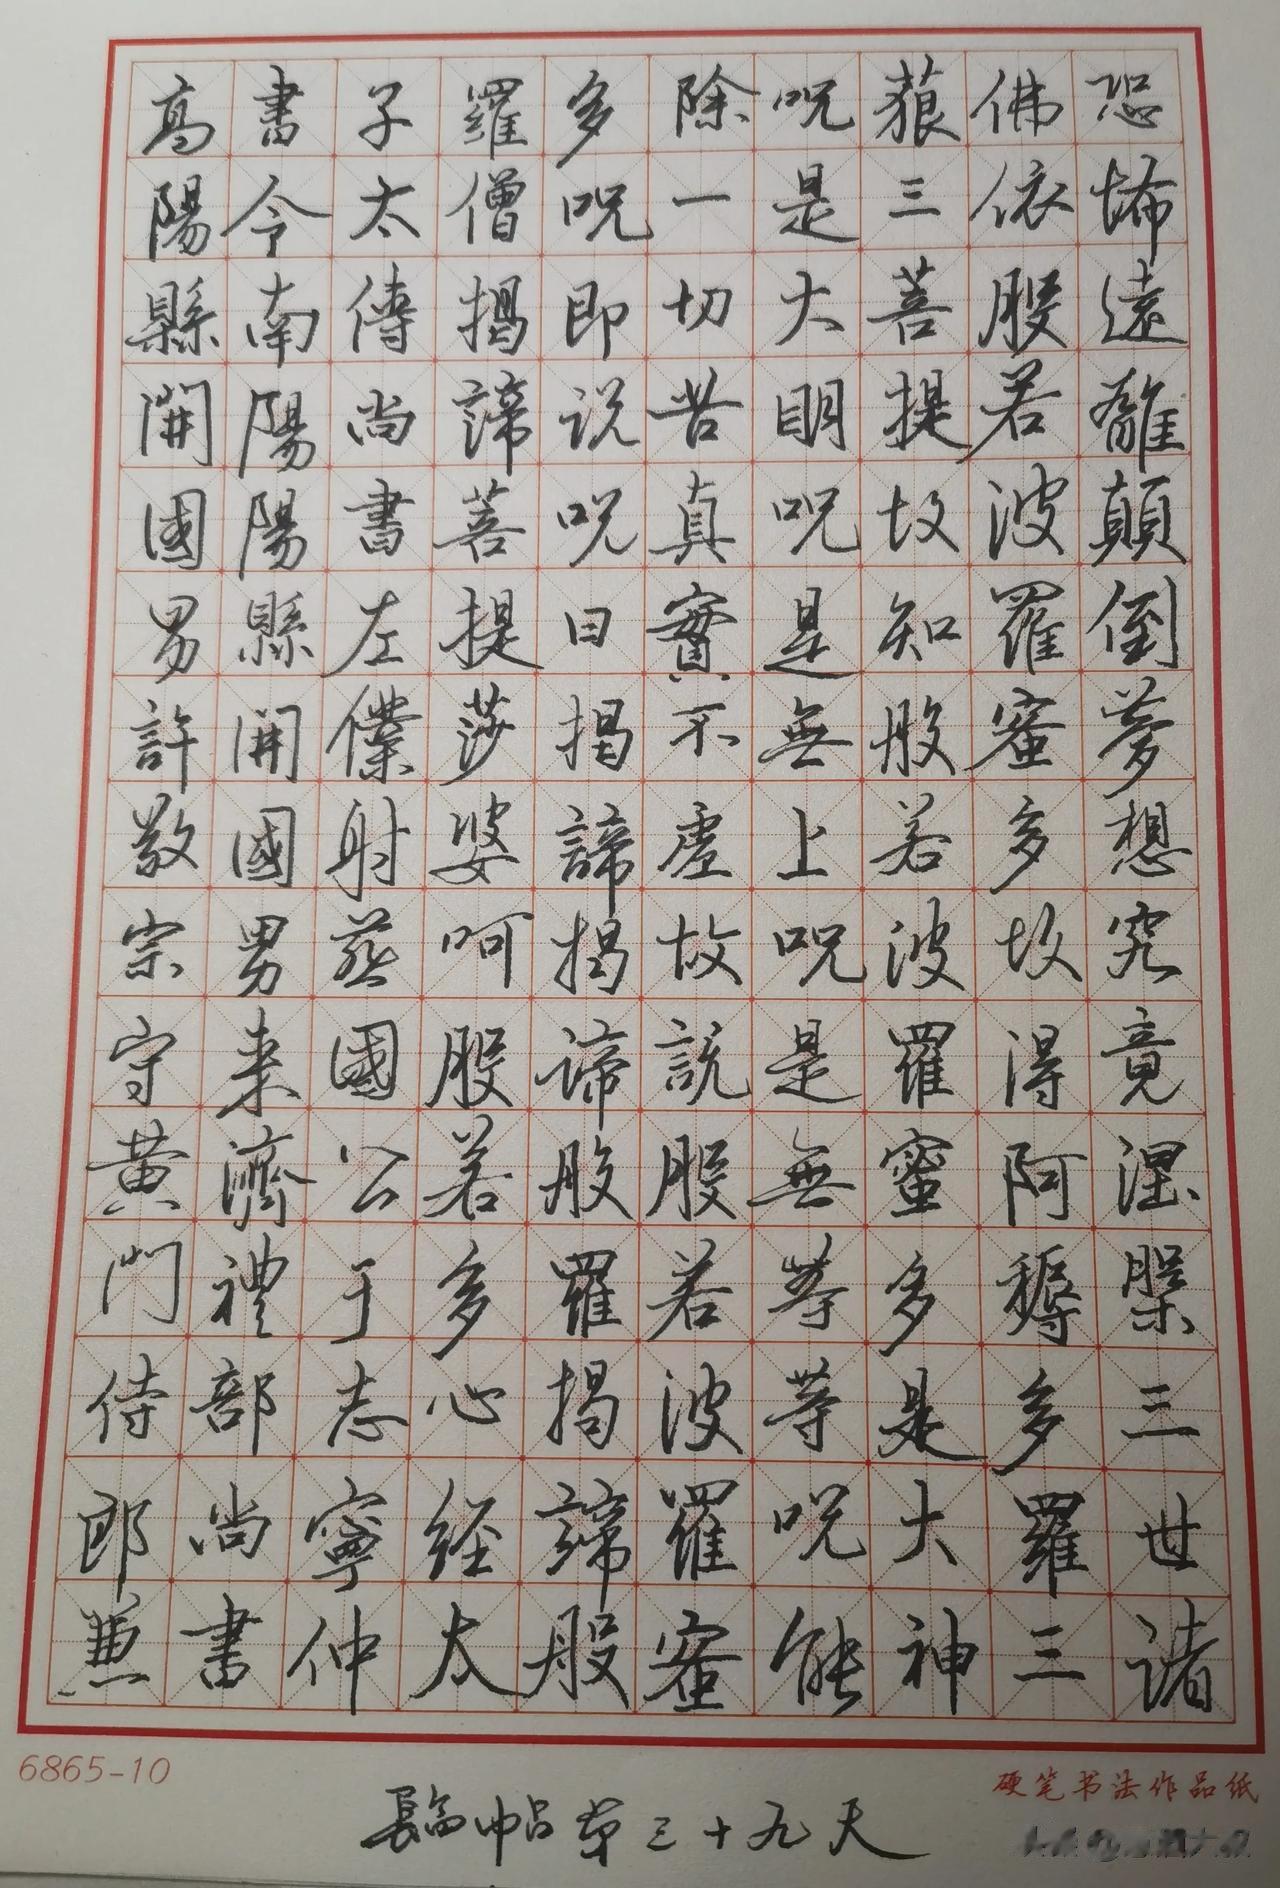 恐怖遠離顛倒夢想究竟涅槃三世諸
佛依般若波羅蜜多故得阿耨多羅三
藐三菩提故知般若波羅蜜多是大神
呪是大明呪是無上呪是無等等呪能
除一切苦真實不虛故説般若波羅蜜
多呪即说呪曰揭諦揭諦般羅揭諦般
羅僧揭諦菩提莎婆呵般若多心经太
子太傅尚書左僕射燕國公于志寧仲
書令南陽陽縣開國男来濟禮部尚書
高陽縣開國男許敬宗守黄門侍郎兼
6865-10
硬笔书法作品纸
臨帖第三十九天